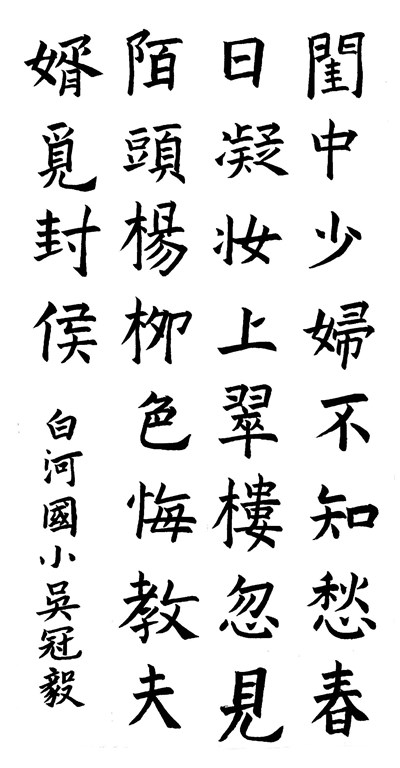 閨中少婦不知愁春
日凝妝上翠樓忽見
陌頭楊柳色悔教夫
婿覓封侯
白河國小吳冠毅